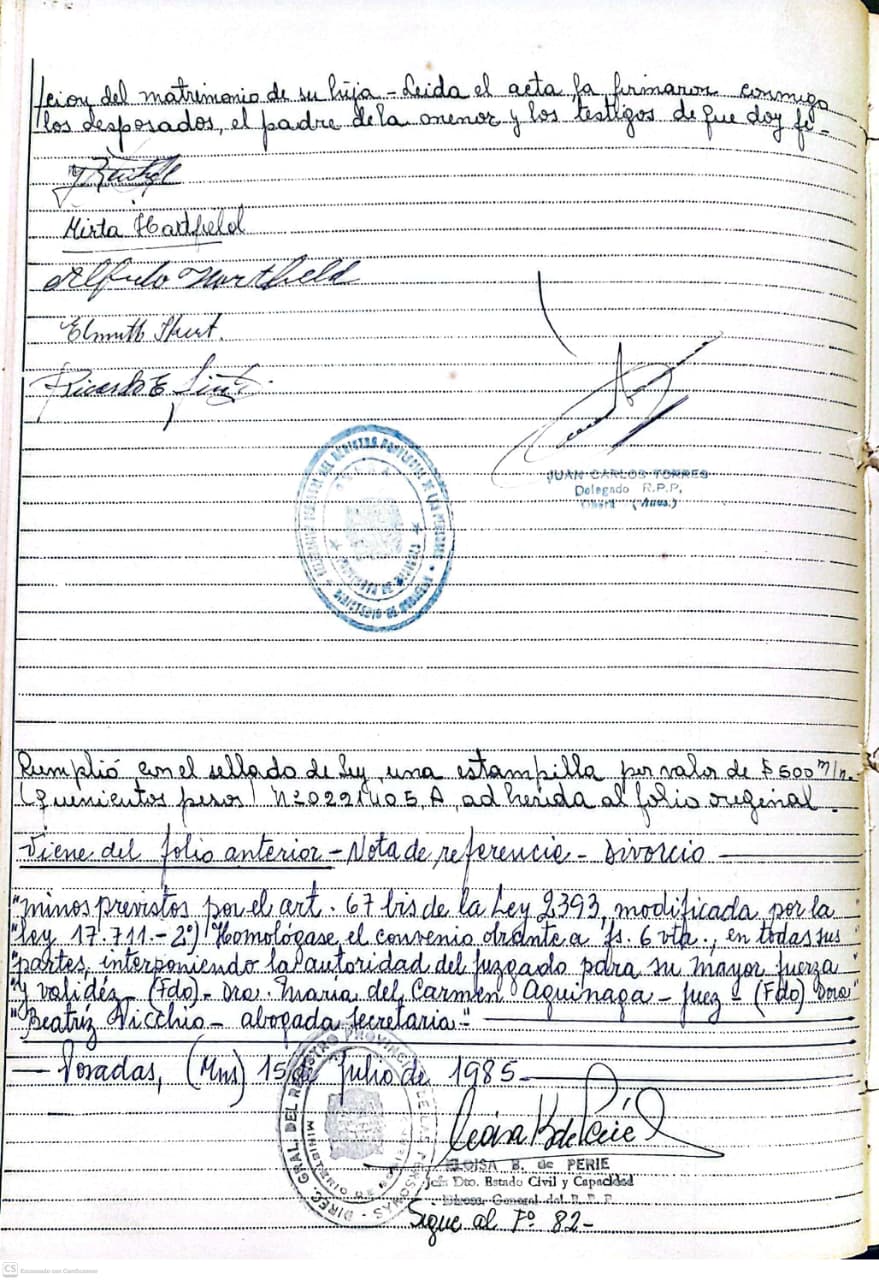 /cion del matrimonio de su hija - Leida el acta, la firmaron conmigo
los desposados, el padre de la menor y los testigos de que doy fe -
Mirta Hartfield
Alfredo Hartfield
Ricardo E.
JUAN CARLOS TORRES
Delegado R.P.P.
Oberá (Mnes.)
MINISTERIO DE GOBIERNO
Cumplió con el sellado de Ley, una estampilla por valor de $ 500 m/n.-
(Quinientos pesos) Nº 0221405, A, adherida al folio original.
Viene del folio anterior - Nota de referencia - Divorcio
"minos previstos por el art. 67 bis de la Ley 2393, modificada por la "
"ley 17.711.- 2º) Homológase el convenio obrante a fs. 6 vta., en todas sus "
"partes, interponiendo la autoridad del juzgado para su mayor fuerza "
"y validéz - (Fdo) - Dra. María del Carmen Aguinaga - Juez - (Fdo) Dora "
"Beatríz Vicchio - abogada secretaria - "
— Posadas, (Mns) 15 de Julio de 1985 -
DIREC. GRAL. DEL REGISTRO PROVINCIAL DE LAS PERSONAS
ELOISA B. de PERIE
Jefa Dto. Estado Civil y Capacidad
Direcc. General del R.P.P.
Sigue al Fº 82 -